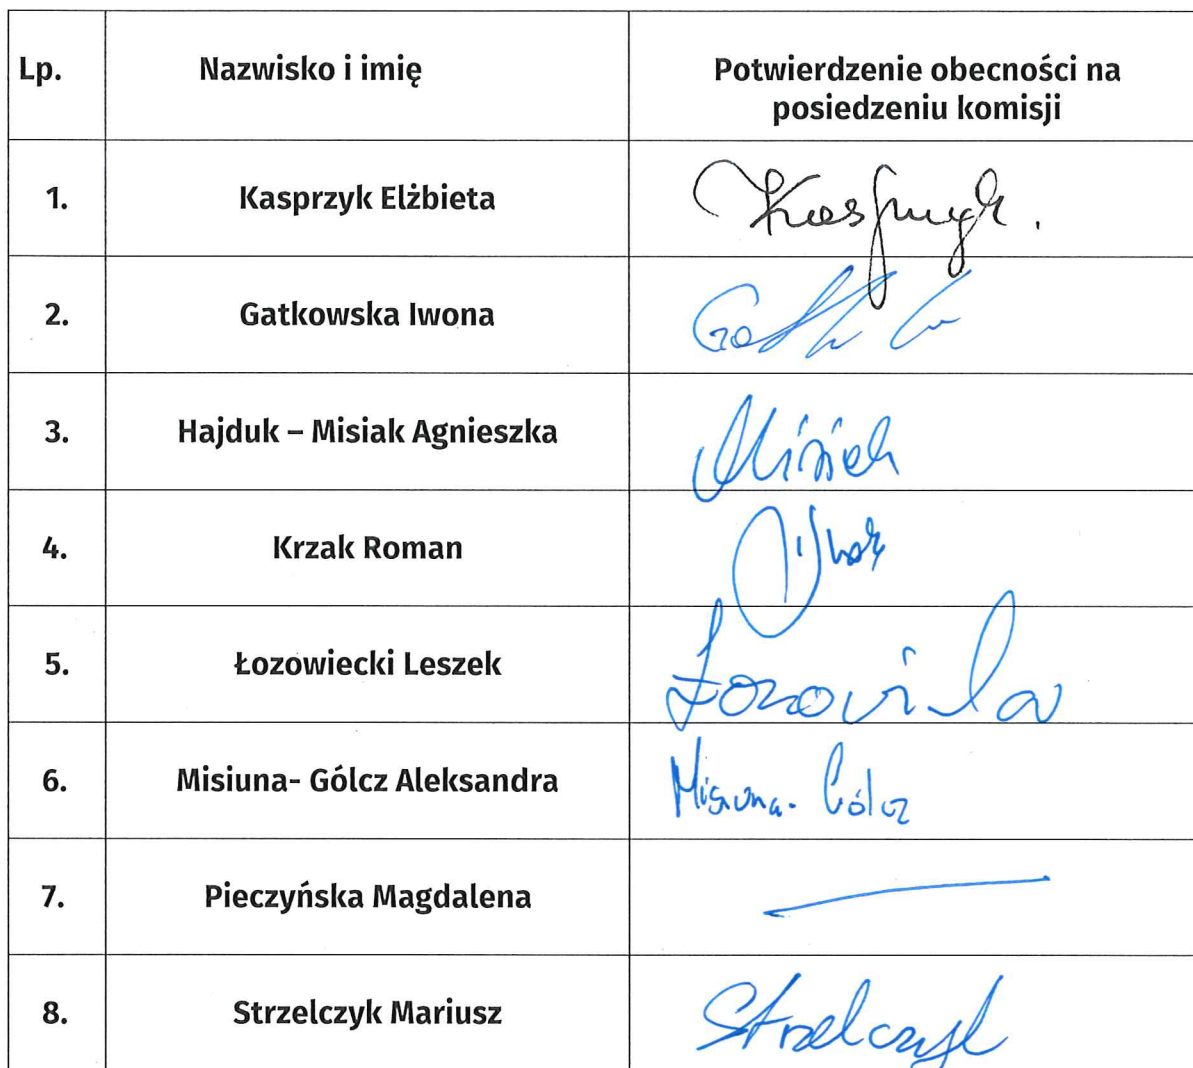 Lp. Nazwisko i imię Potwierdzenie obecności na
posiedzeniu komisji
1. Kasprzyk Elżbieta Kasprzyk.
2. Gatkowska Iwona
3. Hajduk – Misiak Agnieszka Misiak
4. Krzak Roman
5. Łozowiecki Leszek
6. Misiuna- Gólcz Aleksandra Misiuna- Gólcz
7. Pieczyńska Magdalena
8. Strzelczyk Mariusz Strzelczyk